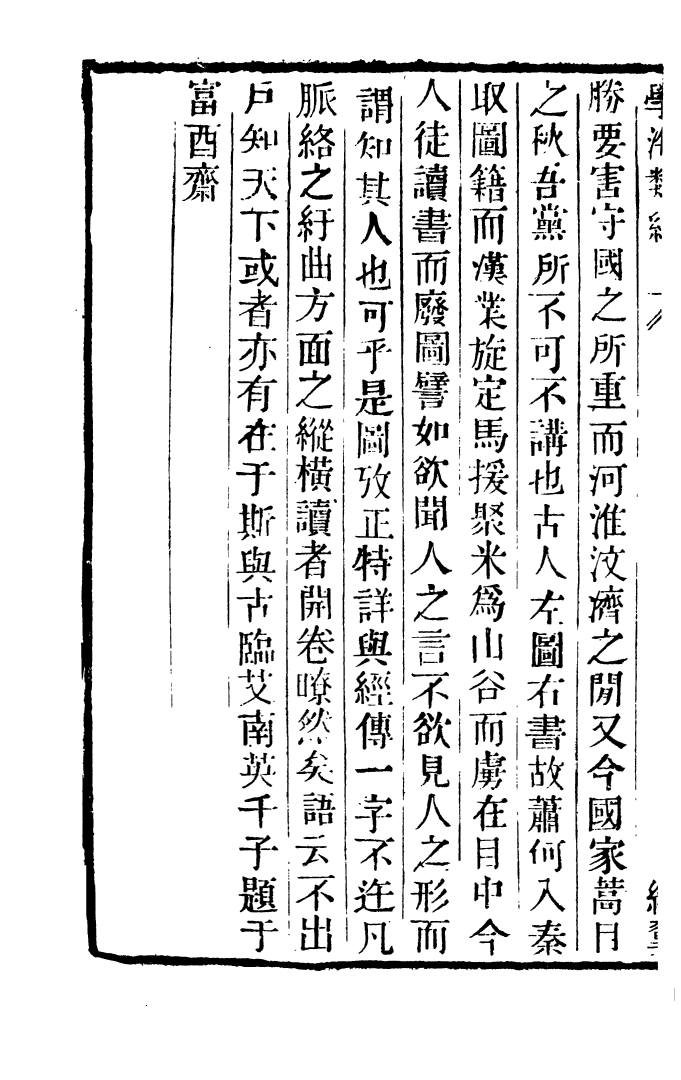 學海類編
勝要害守國之所重而河淮汶濟之閒又今國家蒿目
之秋吾黨所不可不講也古人左圖右書故蕭何入秦
取圖籍而漢業旋定馬援聚米爲山谷而虜在目中今
人徒讀書而廢圖譬如欲聞人之言不欲見人之形而
謂知其人也可乎是圖攷正特詳與經傳一字不迕凡
脈絡之紆曲方面之縱橫讀者開卷暸然矣語云不出
戸知天下或者亦有在于斯與古臨艾南英千子題于
富酉齋